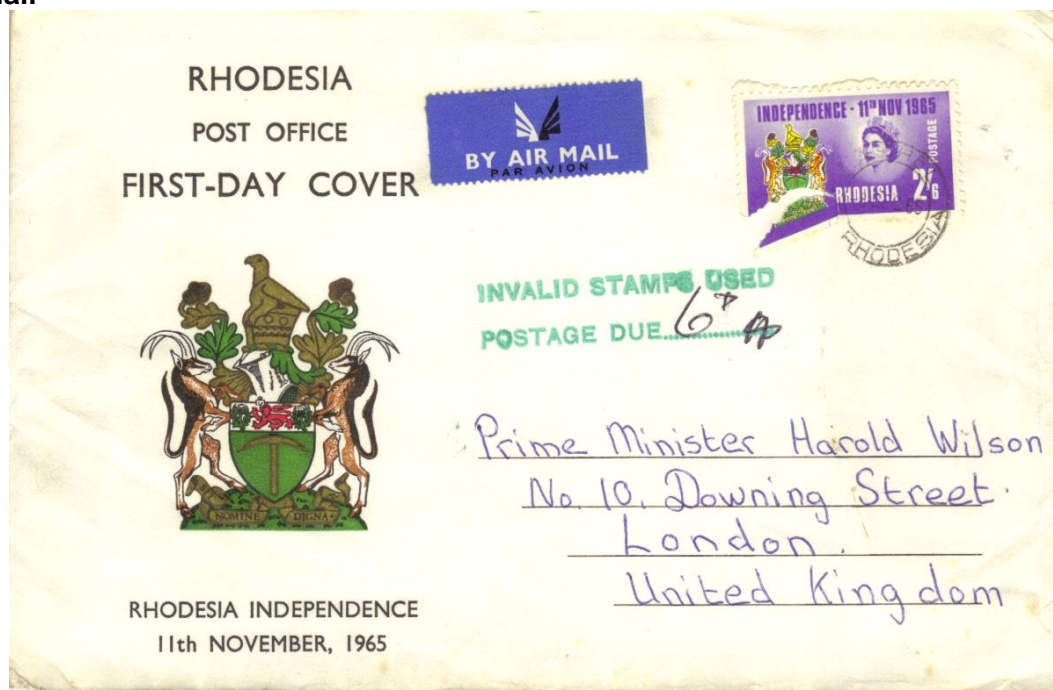 RHODESIA
POST OFFICE
FIRST-DAY COVER
BY AIR MAIL
PAR AVION
INDEPENDENCE · 11TH NOV 1965
POSTAGE
RHODESIA 2/6
RHODESIA
INVALID STAMPS USED
POSTAGE DUE 6d
Prime Minister Harold Wilson
No. 10, Downing Street.
London.
United Kingdom
NOMINE DIGNA
RHODESIA INDEPENDENCE
11th NOVEMBER, 1965